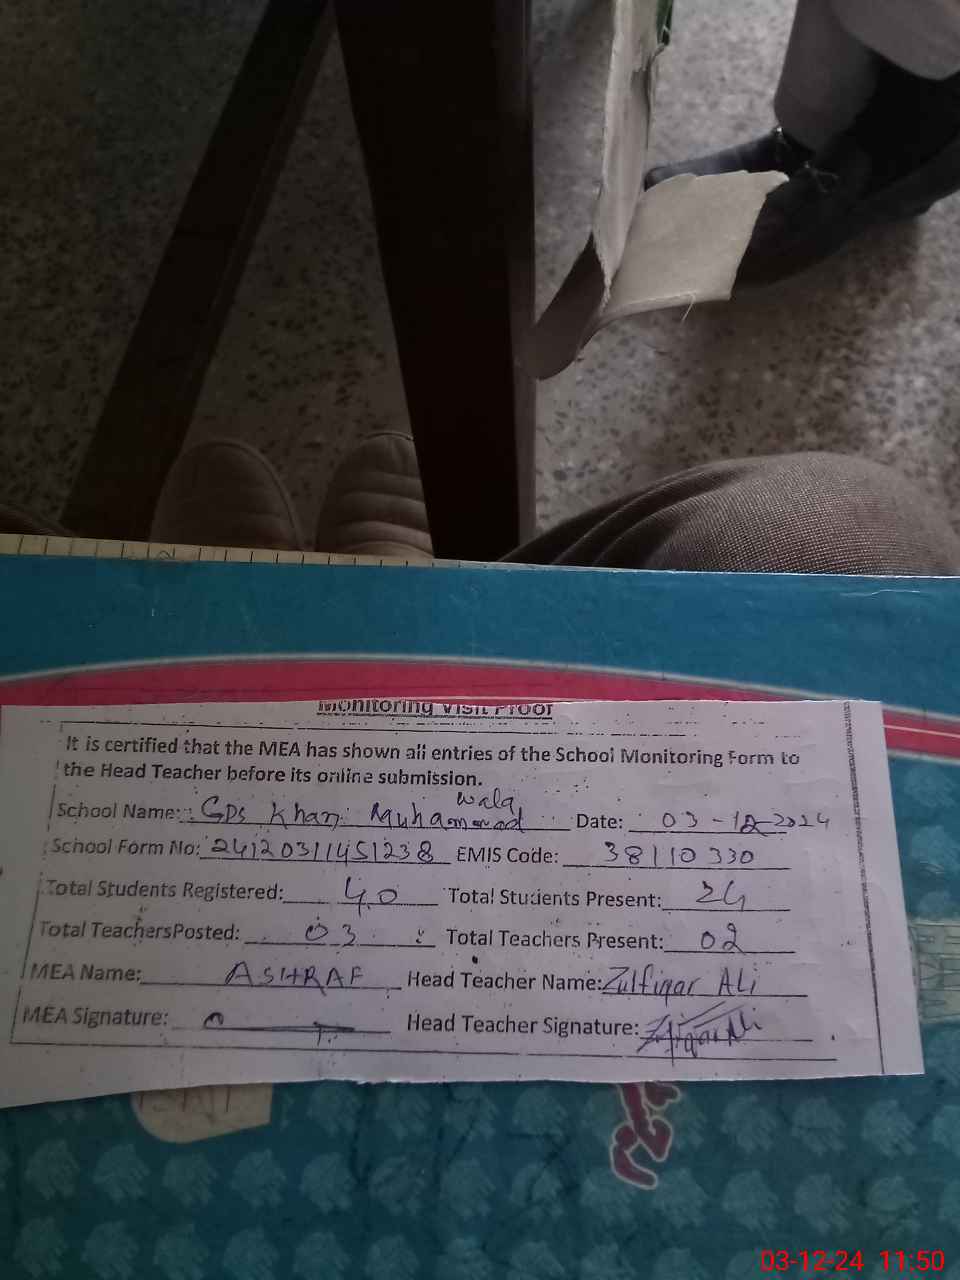 Monitoring Visit Proof
It is certified that the MEA has shown all entries of the School Monitoring Form to
the Head Teacher before its online submission.
School Name: GPS Khan Muhammad wala Date: 03-12-2024
School Form No: 24120311451238 EMIS Code: 38110330
Total Students Registered: 40 Total Students Present: 24
Total TeachersPosted: 03 Total Teachers Present: 02
MEA Name: ASHRAF Head Teacher Name: Zulfiqar Ali
MEA Signature: Head Teacher Signature: Zulfiqar Ali
03-12-24 11:50